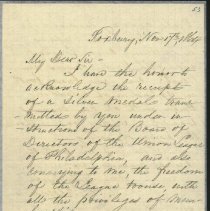 53
Roxbury, Nov 17th
My Dear Sir -
I have the honor to
acknowledge the receipt
of a Silver Medal trans-
mitted by you under in-
structions of the Board of
Directors of the Union League
of Philadelphia, and also
conveying to me, the freedom
of the League House, with
all the privileges of Mem-